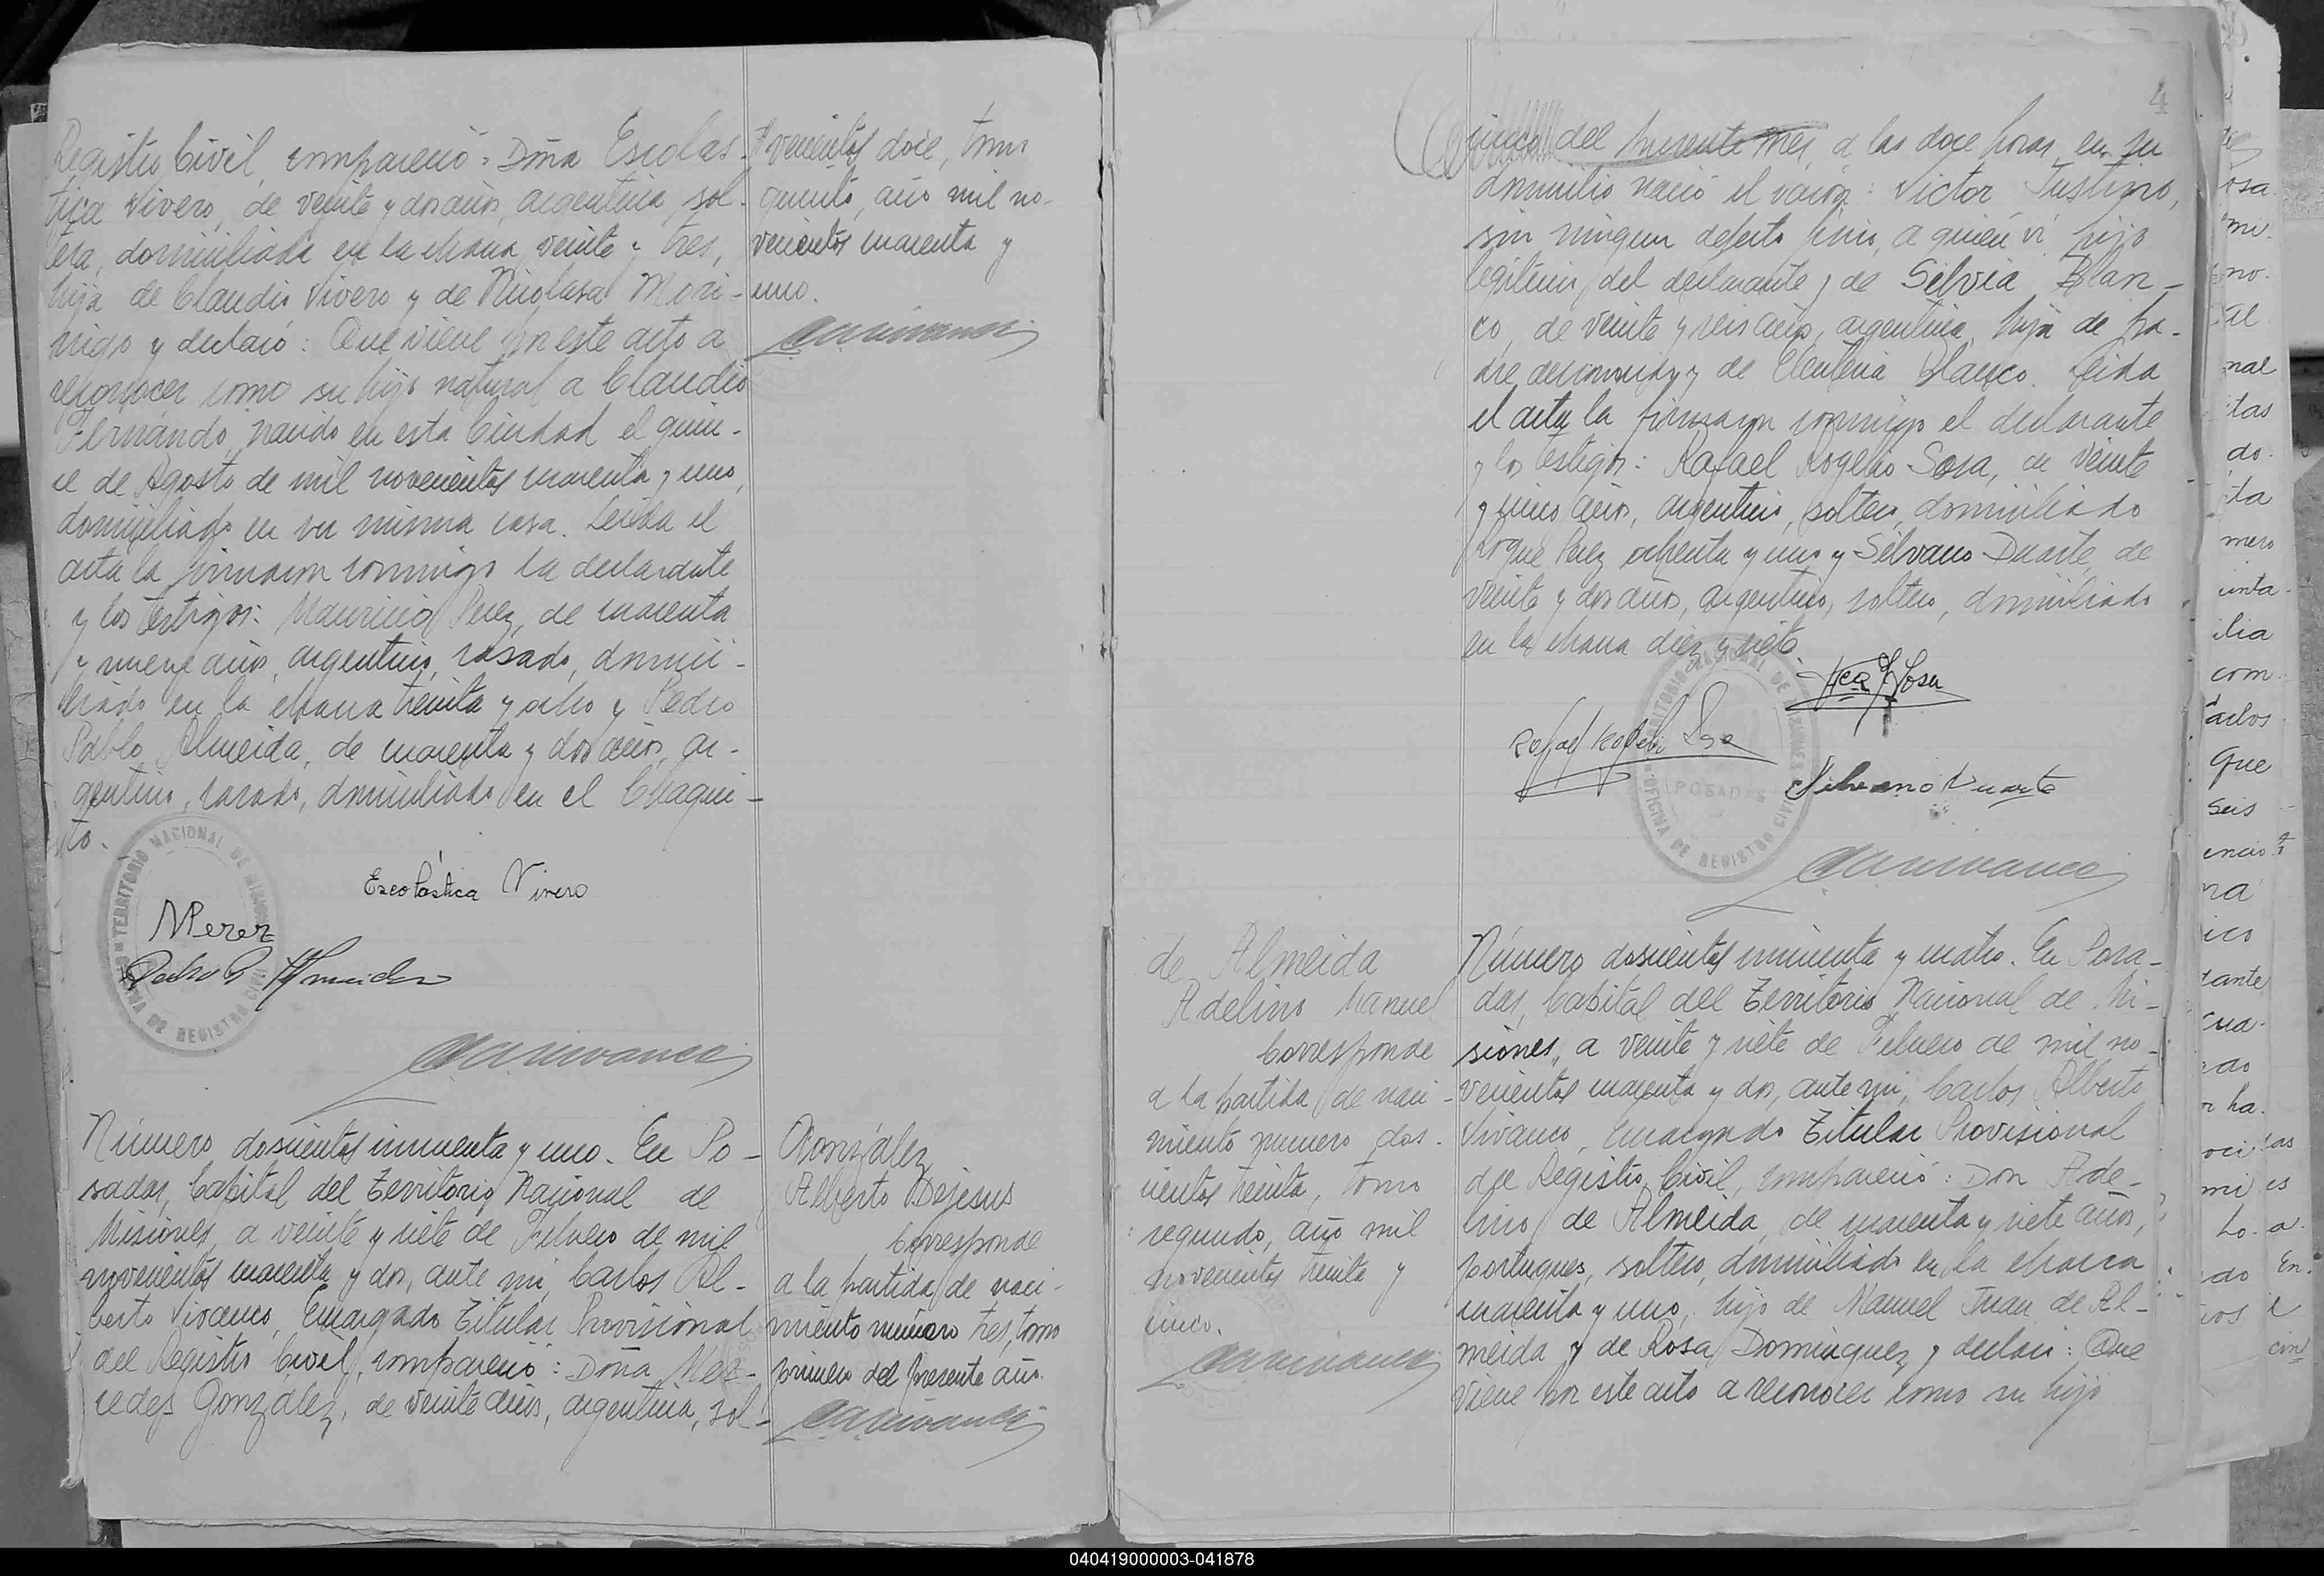 Registro Civil, compareció: Doña Escolás-
tica Vivero, de veinte y dos años, argentina, sol-
tera, domiciliada en la chacra veinte y tres,
hija de Claudio Vivero y de Nicolasa Mori-
nigo y declaró: Que viene por este acto a
reconocer como su hijo natural a Claudio
Fernando, nacido en esta Ciudad el quin-
ce de Agosto de mil novecientos cuarenta y uno,
domiciliado en su misma casa. Leída el
acta la firmaron conmigo la declarante
y los testigos: Mauricio Perez, de cuarenta
y nueve años, argentino, casado, domici-
liado en la chacra treinta y ocho y Pedro
Pablo Almeida, de cuarenta y dos años, ar-
gentino, casado, domiciliado en el Chaqui-
to.
Escolástica Vivero
MPerez
Pedro P. Almeida
TERRITORIO NACIONAL DE MISIONES
OFICINA DE REGISTRO CIVIL
novecientos doce, tomo
quinto, año mil no-
vecientos cuarenta y
uno.
Número doscientos cincuenta y uno. En Po-
sadas, Capital del Territorio Nacional de
Misiones, a veinte y siete de Febrero de mil
novecientos cuarenta y dos, ante mi, Carlos Al-
berto Vivanco, Encargado Titular Provisional
del Registro Civil, compareció: Doña Mer-
cedes González, de veinte años, argentina, sol-
González
Alberto Dejesus
Corresponde
a la partida de naci-
miento número tres, tomo
primero del presente año.
4
cinco del presente mes, a las doce horas, en su
domicilio nació el varón: Victor Justino,
sin ningun defecto fisico, a quien vi, hijo
legítimo del declarante y de Silvia Blan-
co, de veinte y seis años, argentina, hija de pa-
dre desconocido y de Eleuteria Blanco. Leida
el acta la firmaron conmigo el declarante
y los testigos: Rafael Rogelio Sosa, de veinte
y cinco años, argentino, soltero, domiciliado
Roque Perez ochenta y uno y Silvano Duarte, de
veinte y dos años, argentino, soltero, domiciliado
en la chacra diez y siete.
Rafael Rogelio Sosa
Silvano Duarte
TERRITORIO NACIONAL DE MISIONES
POSADAS
OFICINA DE REGISTRO CIVIL
de Almeida
Adelino Manuel
Corresponde
a la partida de naci-
miento numero dos-
cientos treinta, tomo
segundo, año mil
novecientos treinta y
cinco.
Número doscientos cincuenta y cuatro. En Posa-
das, Capital del Territorio Nacional de Mi-
siones, a veinte y siete de Febrero de mil no-
vecientos cuarenta y dos, ante mi, Carlos Alberto
Vivanco, Encargado Titular Provisional
del Registro Civil, compareció: Don Ade-
lino de Almeida, de cuarenta y siete años,
portugues, soltero, domiciliado en la chacra
cuarenta y uno, hijo de Manuel Juan de Al-
meida y de Rosa Dominguez y declaró: Que
viene por este acto a reconocer como su hijo
040419000003-041878